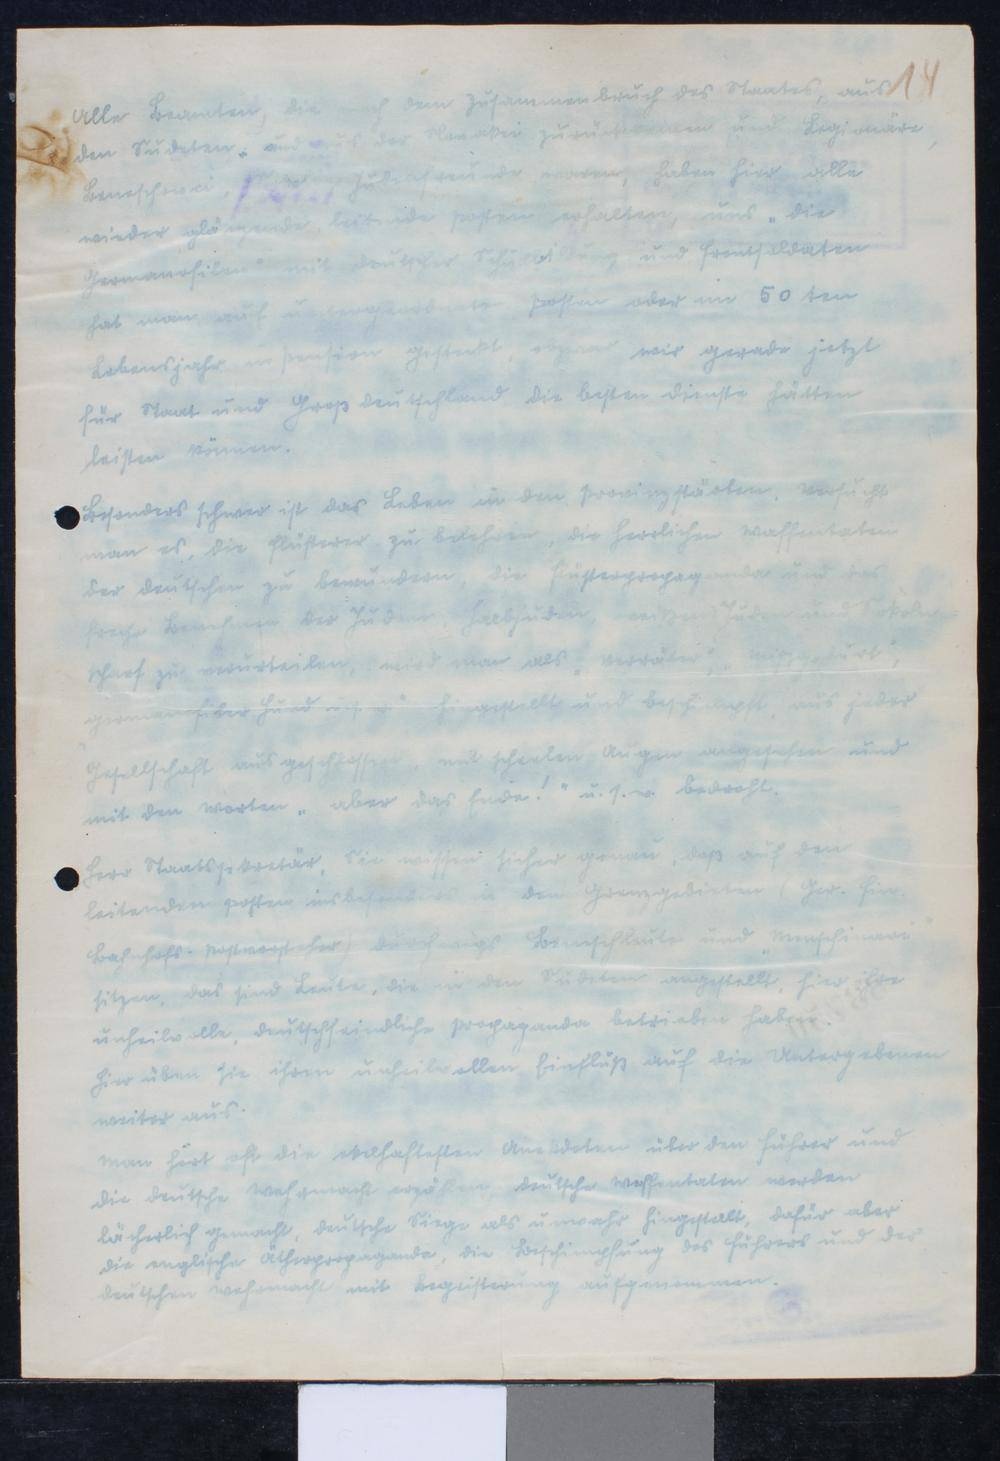 14
Alle Beamten, die nach dem Zusammenbruch des Staates, aus
den Sudeten, und aus der Slowakei zurückkamen und Legionäre,
Judenfreunde waren, haben hier alle
wieder glänzende, leitende Posten erhalten, uns „die
Germanofilen" mit deutscher Schulbildung und Frontsoldaten
hat man auf untergeordnete Posten oder im 50 ten
Lebensjahr in Pension geschickt, obzwar wir gerade jetzt
für Staat und Großdeutschland die besten Dienste hätten
leisten können.
Besonders schwer ist das Leben in den Provinzstädten. Versucht
man es, die Flüsterer zu belehren, die herrlichen Waffentaten
der Deutschen zu bewundern, die Flüsterpropaganda und das
freche Benehmen der Juden, Halbjuden, weißen Juden und
scharf zu verurteilen, wird man als „Verräter", „Missgeburt",
germanofiler Hund u.s.w." hingestellt und beschimpft, aus jeder
Gesellschaft ausgeschlossen, mit scheelen Augen angesehen und
mit den Worten „aber das Ende!" u.s.w. bedroht.
Herr Staatssekretär, Sie wissen sicher genau, daß auf den
leitenden Posten insbesonders in den Grenzgebieten (Ger. Fin.
Bahnhofs- Postvorsteher) durchwegs Beneschleute und
sitzen, das sind Leute, die in den Sudeten angestellt, hier ihre
unheilvolle, deutschfeindliche Propaganda betrieben haben.
Hier üben sie ihren unheilvollen Einfluß auf die Untergebenen
weiter aus.
Man hört oft die ekelhaftesten Anekdoten über den Führer und
die deutsche Wehrmacht erzählen, deutsche Waffentaten werden
lächerlich gemacht, deutsche Siege als unwahr hingestellt, dafür aber
die englische Ätherpropaganda, die Beschimpfung des Führers und der
deutschen Wehrmacht mit Begeisterung aufgenommen.